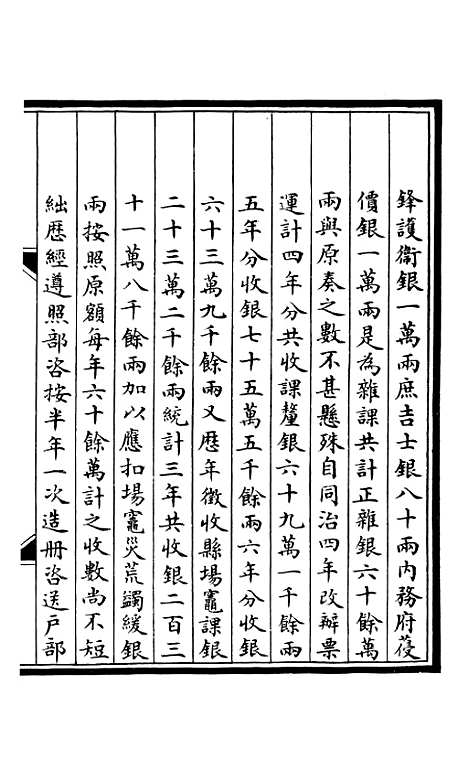 鋒護衛銀一萬兩庶吉士銀八十兩內務府葠
價銀一萬兩是為雜課共計正雜銀六十餘萬
兩與原奏之數不甚懸殊自同治四年改辦票
運計四年分共收課釐銀六十九萬一千餘兩
五年分收銀七十五萬五千餘兩六年分收銀
六十三萬九千餘兩又歷年徵收縣場竈課銀
二十三萬二千餘兩統計三年共收銀二百三
十一萬八千餘兩加以應扣場竈災荒蠲緩銀
兩按照原額每年六十餘萬計之收數尚不短
絀歷經遵照部咨按半年一次造冊咨送戶部